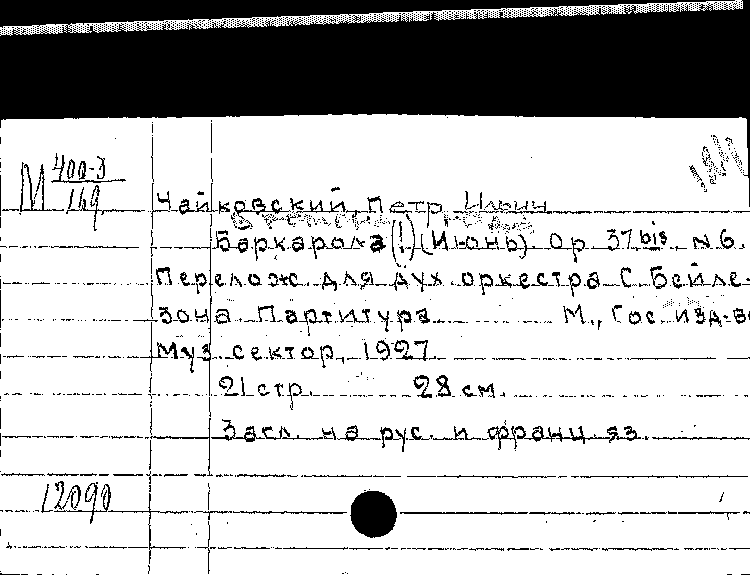 М 400-3
169
Чайковский, Петр Ильич
Баркарола (!) (Июнь). Op. 37 bis. N 6.
Перелож. для дух. оркестра С. Бейле-
зона. Партитура. М., Гос. изд-во
Муз. сектор, 1927.
21 стр. 28 см.
Загл. на рус. и франц. яз.
12090